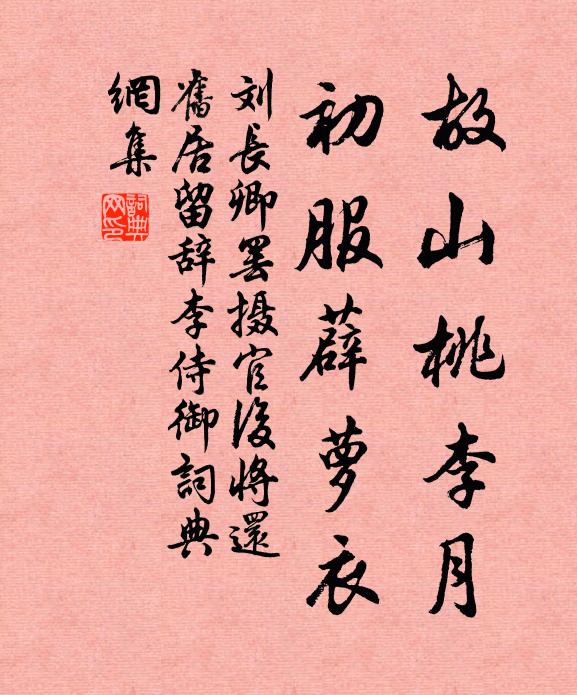 故山桃李月
初服薜萝衣
刘長卿罢摄官後將還
舊居留辞李侍御詞典
網集
詞典網印